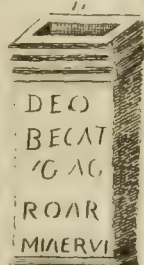 DEO
BECAT
ROAR
MINERVI